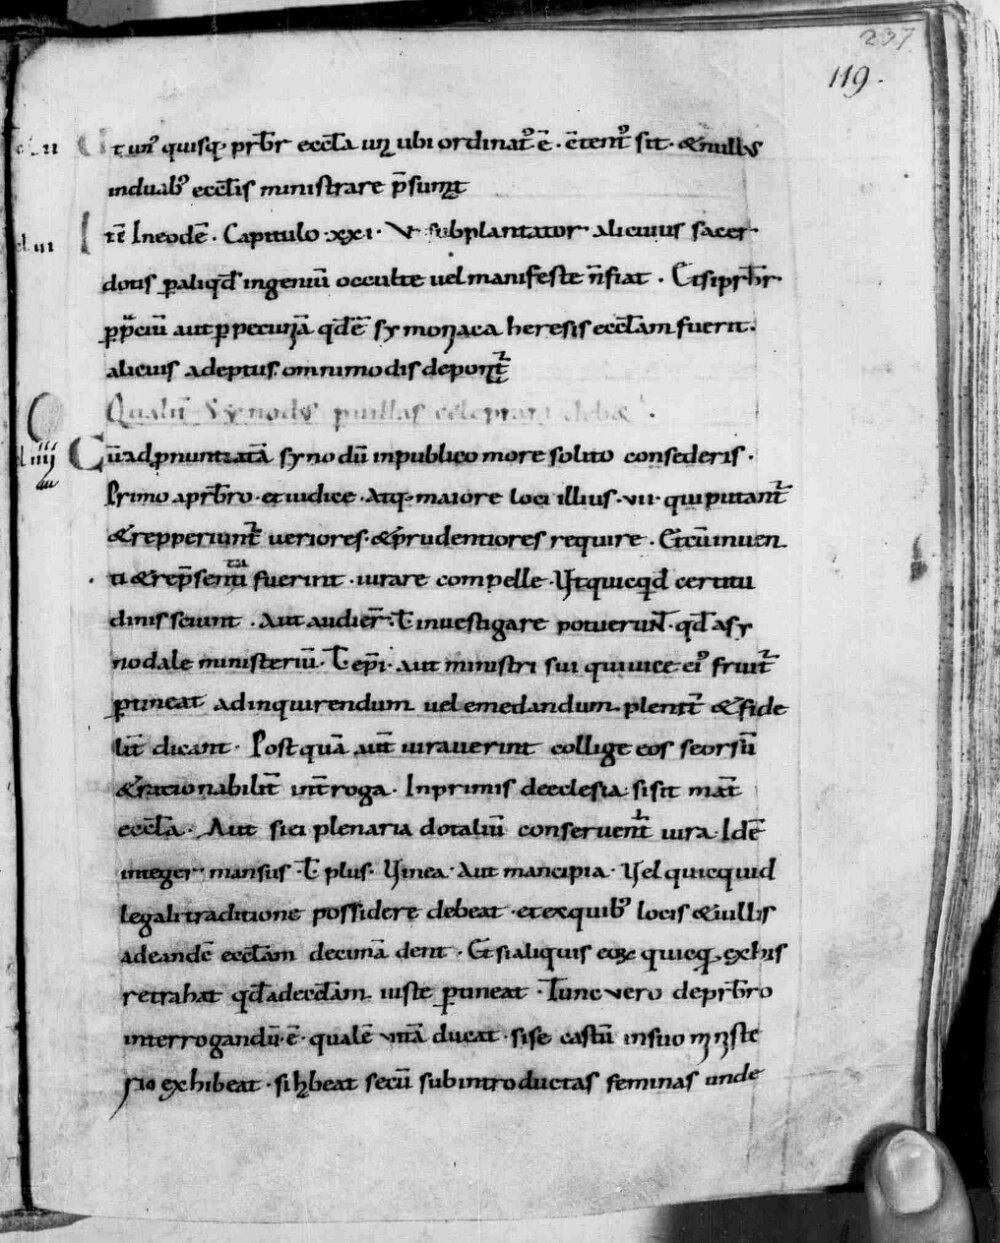 237
119.
c̄. ii Ut unꝰ quisq; pr̄br eccl̄a un̄ ubi ordinatꝰ ē · c̄tentꝰ sit · & nullus
induabꝰ eccl̄is ministrare p̄sumat
cł iii Itē Ineodē · Capitulo · xxi · Vt subplantator alicuius sacer
dotis ꝑ aliqd̄ ingeniū occulte uel manifeste n̄ fiat · Et si pr̄br
ꝑ p̄ciū aut ꝑ pecuniā qd̄ ē symoniaca heresis eccl̄am fuerit ·
alicuis adeptus omnimodis deponat᷑
Qualit̄ Synodus ꝑ uillas celeprari deb&.
cł iiii Cū ad ꝓnuntiatā synodū inpublico more solito consederis ·
Primo a pr̄bro · et iudice · Atq; maiore loci illius · vii · qui putant᷑
& repperiunt᷑ ueriores · & prudentiores require · Et cū inuen
ti & rep̄sentati fuerint · iurare compelle · Ut quicqd̄ certitu
dinis sciunt · Aut audier̄ · ł inuestigare potuerunt · qd̄ a sy
nodale ministeriū · ł ep̄i · aut ministri sui qui uice eiꝰ fruit᷑
ꝑtineat ad inquirendum uel emedandum · plenit̄ & fide
lit̄ dicant · Postquā aut̄ iurauerint collige eos seorsū
& racionabilit̄ int̄roga · Inprimis de eclesia si sit mat̄
eccl̄a · Aut si ei plenaria dotaliū conseruent᷑ iura · Idē
integer mansus · ł plus · Uinea · Aut mancipia · Uel quicquid
legali traditione possidere debeat · et ex quibꝰ locis & uillis
ad eandē eccl̄am decimā dent · Et si aliquis quicq; ex his
retrahat qd̄ ad eccl̄am iuste ꝑtineat · Tunc vero de pr̄bro
interrogandū · ē · qualē vitā ducat · si se castū in suo ministe
rio exhibeat · si habeat secū subintroductas feminas unde